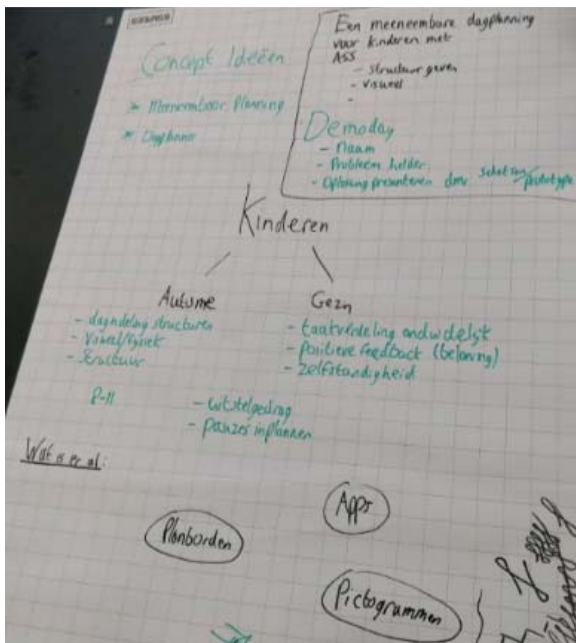 Concept Ideëen
* Meeneembaar Planning
* Dagplanner
Een meeneembare dagplanning
voor kinderen met
ASS
- Structuur geven
- visueel
-
Demoday
- Naam
- Probleem helder
- Oplossing presenteren dmv schetsen/prototype
Kinderen
Autisme
- dagindeling structuren
- Visueel/fysiek
- Structuur
Gezin
- taakverdeling onduidelijk
- positieve feedback (beloning)
- zelfstandigheid
8-11
- uitstelgedrag
- pauzes inplannen
Wat is er al:
Planborden
Apps
Pictogrammen